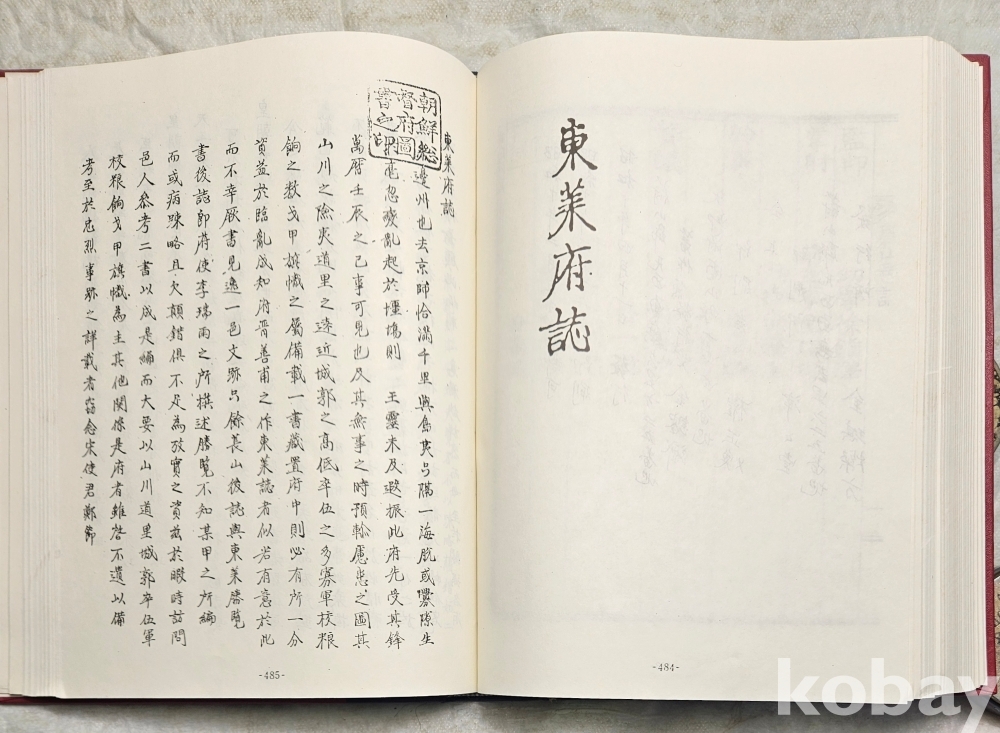 東萊府誌
-484-
朝鮮総
督府圖
書之印
東萊府誌
邊州也去京師恰滿千里與島夷只隔一海脫或釁隙生
毫忽殘亂起於壃場則 王靈未及遐振此府先受其鋒
萬曆壬辰之已事可見也及其無事之時預軫慮患之圖其
山川之險夷道里之遠近城郭之高低卒伍之多寡軍校粮
餉之数戈甲旗幟之屬備載一書藏置府中則必有所一分
資益於臨亂成知府晋善甫之作東萊誌者似若有意於此
而不幸厥書見逸一邑文跡只餘萇山後誌與東萊勝覽
書後誌即蔣使李瑞雨之所撰述勝覽不知某甲之所編
而或病踈略且欠顚錯俱不足為攷實之資玆於暇時訪問
邑人叅考二書以成是編而大要以山川道里城郭卒伍軍
校粮餉戈甲旗幟為主其他関係是府者雖 不遺以備
考至於忠烈事跡之詳載者窃念宋使君鄭節
-485-
kobay